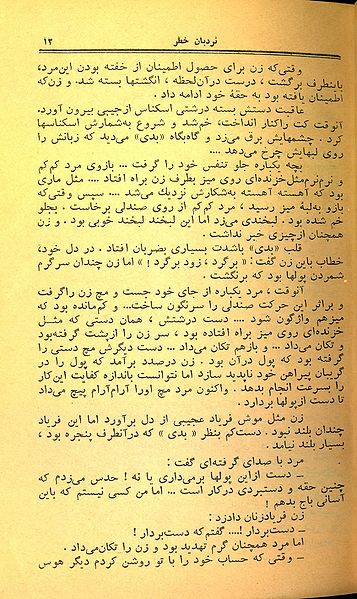 نردبان خطر ۱۳
وقتی‌که زن برای حصول اطمینان از خفته بودن این‌مرد،
باینطرف برگشت ، درست درآن‌لحظه ، انگشتها بسته شد. و زن‌که
اطمینان یافته بود به حقهٔ خود ادامه داد .
عاقبت دستش بسته درشتی اسکناس ازجیبی بیرون آورد.
آنوقت کت راکنار انداخت، خم‌شد و شروع به‌شمارش اسکناسها
کرد . چشمهایش برق می‌زد و گاه‌بگاه «بدی» می‌دید که زبانش را
روی لبهایش چرخ می‌دهد ....
بچه یکباره جلو تنفس خود را گرفت ... بازوی مرد کم‌کم
و نرم‌نرم‌مثل‌خزنده‌ای روی میز بطرف زن براه افتاد .... مثل ماری
بود که آهسته آهسته به‌شکارش نزدیك می‌شد .... سپس وقتی‌که
بازو به‌لبهٔ میز رسید ، مرد کم‌کم از روی صندلی برخاست . بجلو
خم شده بود . لبخندی می‌زد اما این لبخند لبخند خوبی بود . و زن
همچنان ازچیزی خبر نداشت .
قلب «بدی» باشدت بسیاری بضربان افتاد . در دل خود،
خطاب باین زن گفت: « برگرد ، زود برگرد ! » اما زن چندان سرگرم
شمردن پولها بود که برنگشت .
آنوقت ، مرد یکباره از جای خود جست و مچ زن راگرفت
و براثر این حرکت صندلی را سرنگون ساخت... و کم‌مانده بود که
میزهم واژگون شود .... دست درشتش ، همان دستی که مثــل
خزنده‌ای روی میز براه افتاده بود ، سر زن را ازپشت گرفته‌بود
و تکان می‌داد ... و بازهم تکان می‌داد... دست دیگرش مچ دستی را
گرفته بود که پول درآن بود . زن درصدد برآمد که پول را در
گریبان پیراهن خود ناپدید سازد اما نتوانست باندازه کفایت این‌کار
را بسرعت انجام بدهد . واکنون مرد مچ اورا آرام‌آرام پیچ می‌داد
تا دست ازپولها بردارد .
زن مثل موش فریاد عجیبی از دل برآورد اما این فریاد
چندان بلند نبود . دست‌کم بنظر « بدی » که درآنطرف پنجره بود ،
بسیار بلند نیامد .
مرد با صدای گرفته‌ای گفت :
ــ دست ازاین پولها برمی‌داری یا نه ! حدس می‌زدم که
چنین حقه و دستبردی درکار است ... اما من کسی نیستم که باین
آسانی باج بدهم !
زن فریادزنان دادزد :
ــ دست‌بردار !.... گفتم‌که دست‌بردار !
اما مرد همچنان گرم تهدید بود و زن را تکان‌می‌داد .
ــ وقتی که حساب خود را با تو روشن کردم دیگر هوس